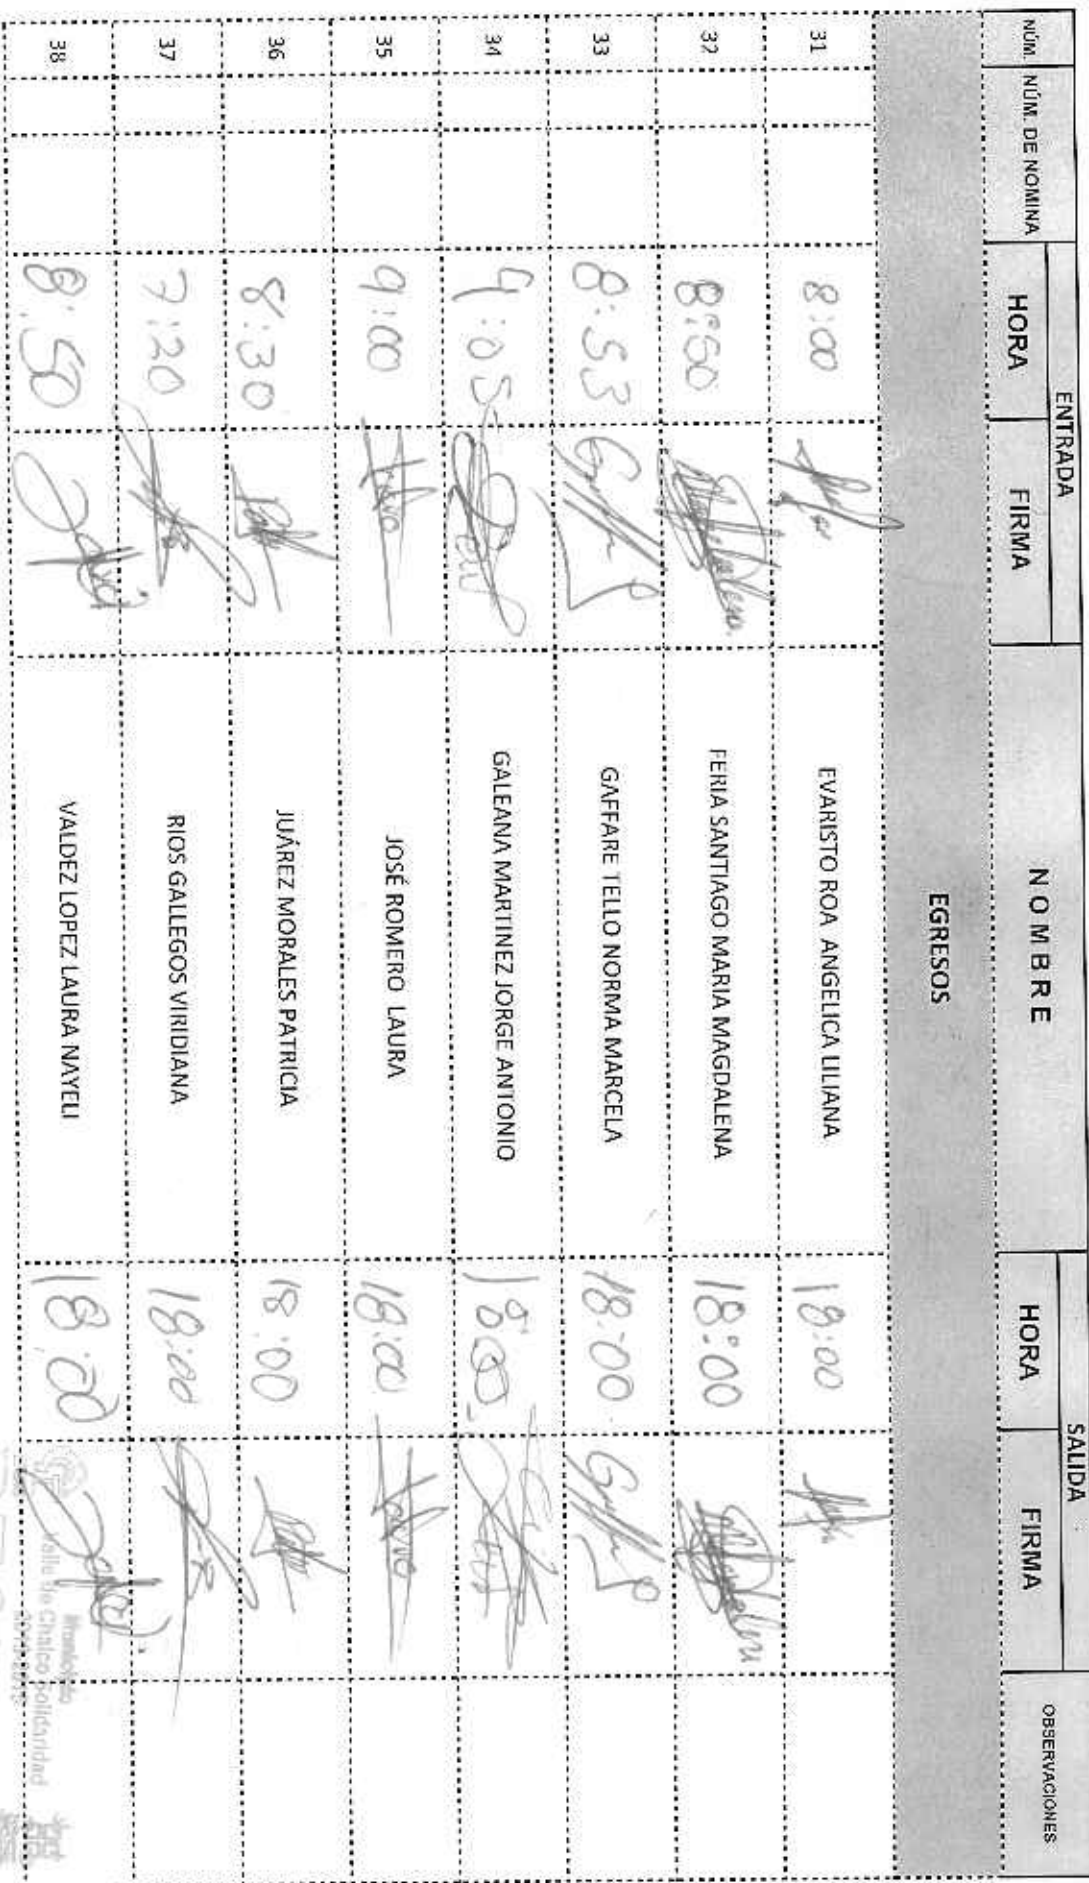 ENTRADA SALIDA
NÚM. NÚM. DE NOMINA HORA FIRMA N O M B R E HORA FIRMA OBSERVACIONES
EGRESOS
31 8:00 EVARISTO ROA ANGELICA LILIANA 18:00
32 8:50 FERIA SANTIAGO MARIA MAGDALENA 18:00
33 8:53 GAFFARE TELLO NORMA MARCELA 18:00
34 9:05 GALEANA MARTINEZ JORGE ANTONIO 18:00
35 9:00 JOSÉ ROMERO LAURA 18:00
36 8:30 JUÁREZ MORALES PATRICIA 18:00
37 7:20 RIOS GALLEGOS VIRIDIANA 18:00
38 8:50 VALDEZ LOPEZ LAURA NAYELI 18:00
Valle de Chalco Solidaridad